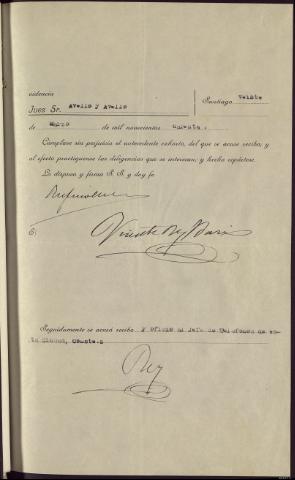 videncia
Juez Sr. Avello y Avello
Santiago veinte
de marzo de mil novecientos
Cúmplase sin perjuicio el antecedente exhorto, del que se acuse recibo; y
al efecto practíquense las diligencias que se interesan, y hecho repórtese.
Lo dispuso y firma S. S. y doy fe
Vicente Rey
Seguidamente se acusó recibo y oficio al Jefe de Teléfonos de es-
ta Ciudad,
Rey